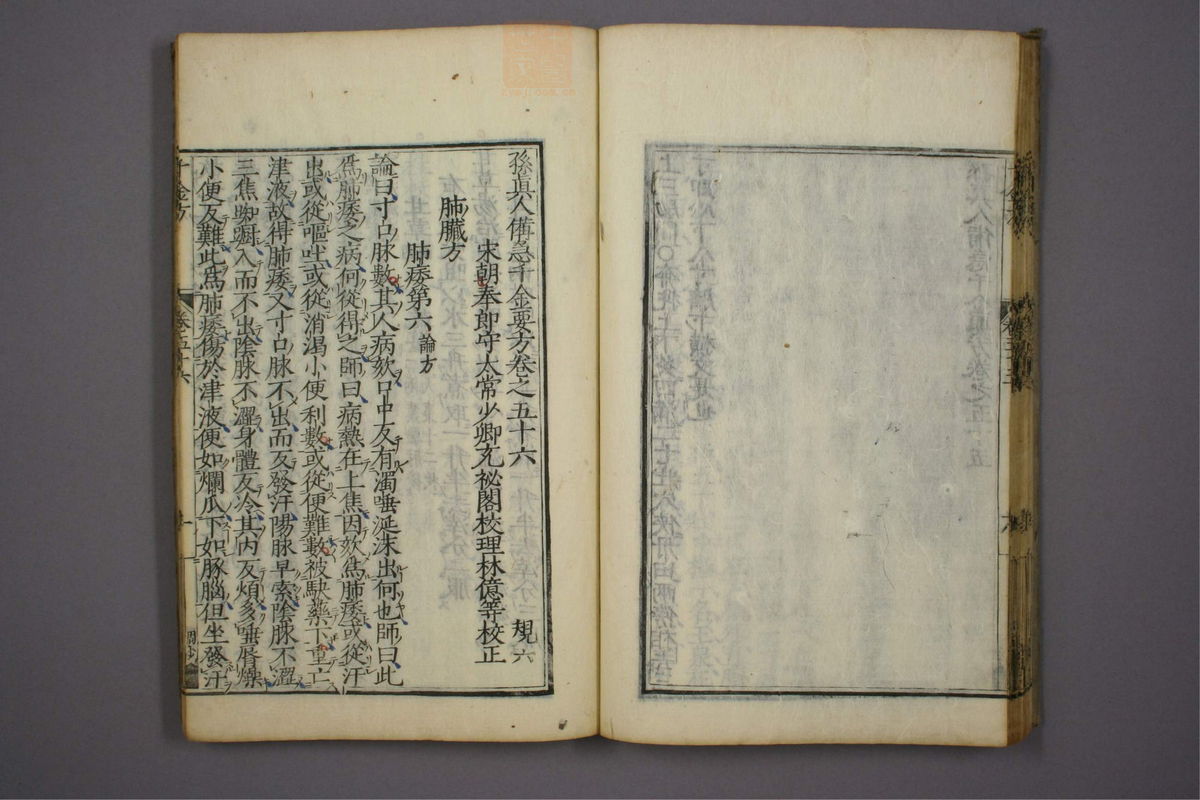 孫真人備急千金要方卷之五十六 規六
宋朝奉郎守太常少卿充祕閣校理林億等校正
肺臟方
肺痿第六 論方
論曰寸口脉數其人病欬口中反有濁唾涎沫出何也師曰此
爲肺痿之病何從得之師曰病熱在上焦因欬爲肺痿或從汗
出或從嘔吐或從消渴小便利數或從便難數被駃藥下重亡
津液故得肺痿又寸口脉不出而反發汗陽脉早索陰脉不澀
三焦踟蹰入而不出陰脉不澀身體反冷其内反煩多唾脣燥
小便反難此爲肺痿傷於津液便如爛瓜下如豚腦但坐發汗
千金方
卷五十六
一